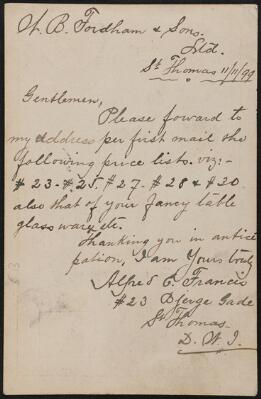 W. B. Fordham & Sons.
Ltd.
St Thomas 11/11/99
Gentlemen,
Please foward to
my address per first mail the
following price lists. viz:-
# 23-#25. #27. #28 & #20
also that of your fancy table
glass ware etc.
Thanking you in antici
pation, I am Yours truly
Alfred E. Francis
#23 Bjerge Gade
St Thomas
D. W. I.